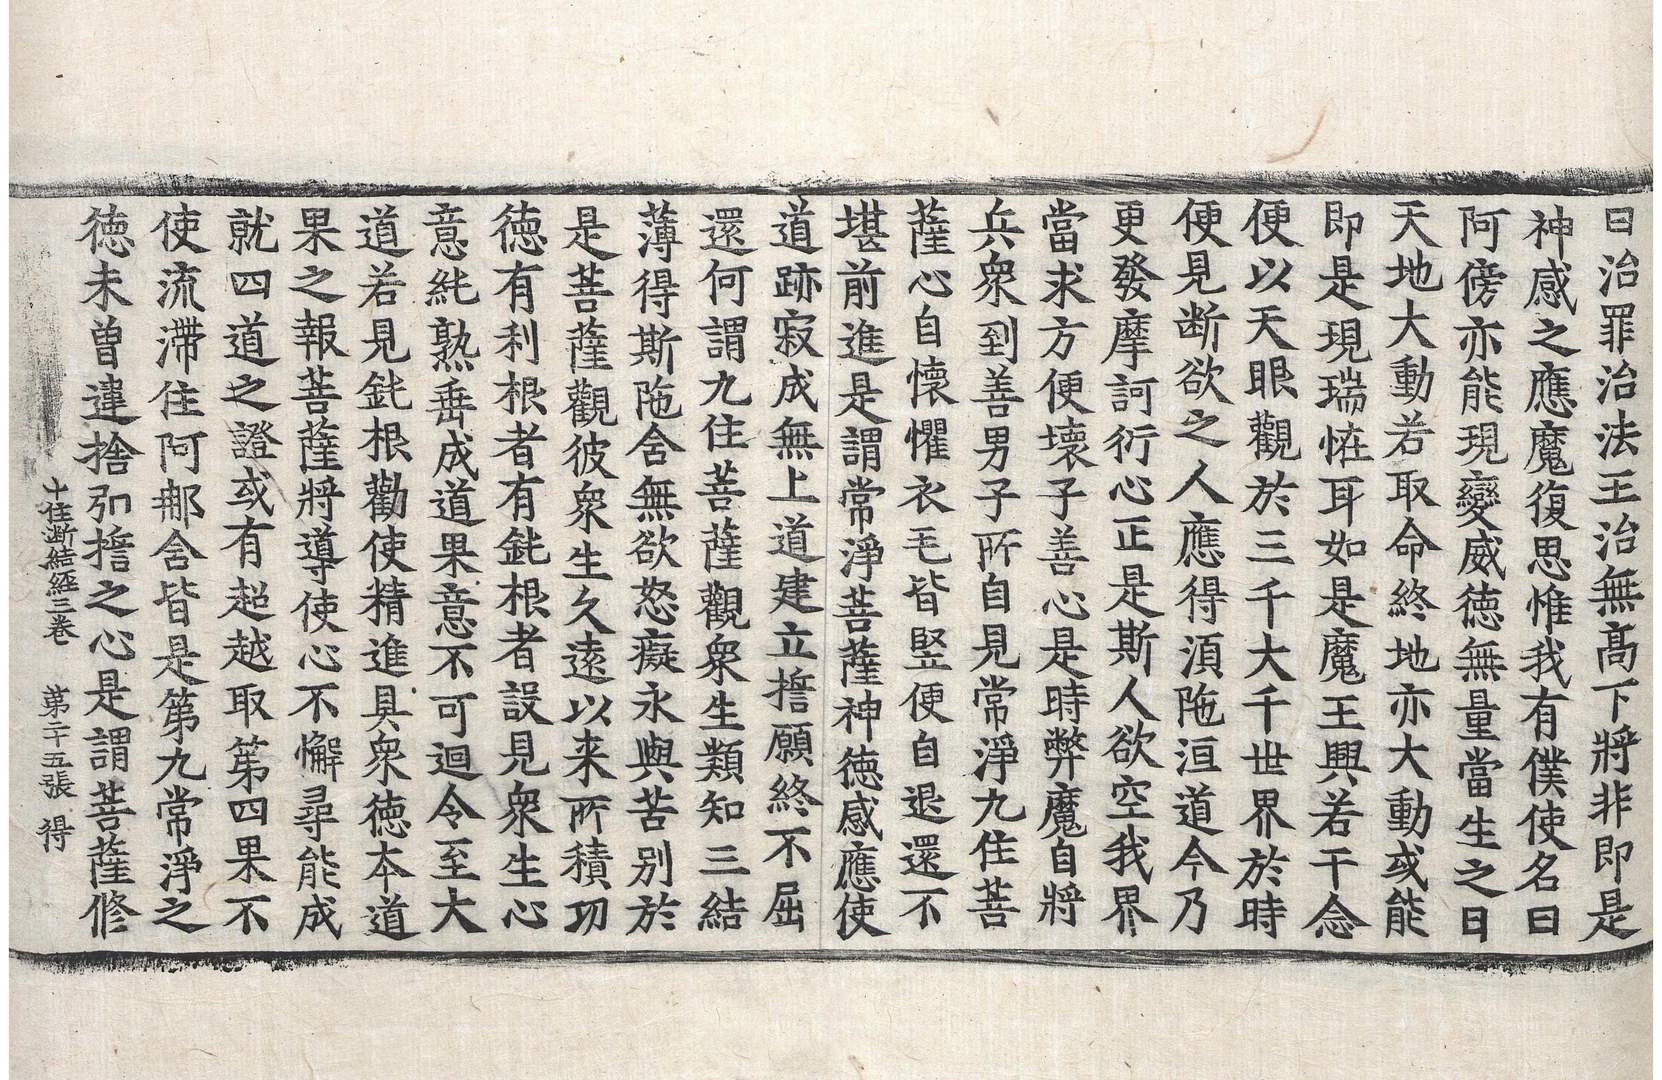 曰治罪治法王治無髙下將非即是
神感之應魔復思惟我有僕使名曰
阿傍亦能現變威徳無量當生之日
天地大動若取命終地亦大動或能
即是現瑞恠耳如是魔王興若干念
便以天眼觀於三千大千世界於時
便見断欲之人應得湏陁洹道今乃
更發摩訶衍心正是斯人欲空我界
當求方便壊子善心是時弊魔自將
兵衆到善男子所自見常淨九住菩
薩心自懷懼衣毛皆竪便自退還不
堪前進是謂常淨菩薩神徳感應使
道跡寂成無上道建立擔願終不屈
還何謂九住菩薩觀衆生類知三結
薄得斯陁含無欲怒癡永與苦別於
是菩薩觀彼衆生久遠以来所積功
徳有利根者有鈍根者設見衆生心
意純熟垂成道果意不可迴令至大
道若見鈍根勸使精進具衆徳本道
果之報菩薩將導使心不懈尋能成
就四道之證或有超越取第四果不
使流滯住阿郍含皆是第九常淨之
徳未曾違捨弘擔之心是謂菩薩修
十住断結經三卷　第二十五張　得